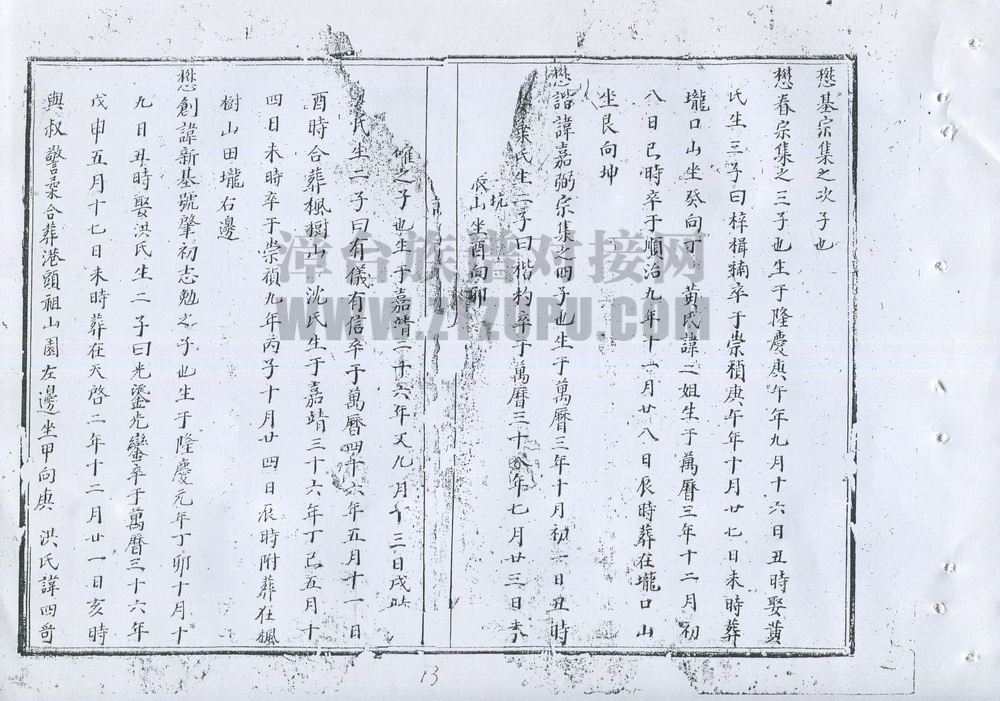 懋基宗集之次子也
懋春宗集之三子也生于隆慶庚午年九月十六日丑時娶黃
氏生三子曰梓楫輔卒于崇禎庚午年十月廿七日未時葬
壠口山坐癸向丁 黃氏諱二姐生于萬曆三年十二月初
八日巳時卒于順治九年十一月廿八日辰時葬在壠口山
坐艮向坤
懋諧諱嘉弼宗集之四子也生于萬曆三年十月初一日丑時
葉氏生二子曰楷杓卒于萬曆三十年七月廿三日未
坑
辰山坐酉向卯
之子也生于嘉靖二十六年又九月十三日戌時
氏生二子曰有儀有信卒于萬曆四十六年五月十一日
酉時合葬楓樹山 沈氏生于嘉靖三十六年丁巳五月十
四日未時卒于崇禎九年丙子十月廿四日辰時附葬在楓
樹山田壠右邊
懋創諱新基號肇初志勉之子也生于隆慶元年丁卯十月十
九日丑時娶洪氏生二子曰光鎏光鑾卒于萬曆三十六年
戊申五月十七日未時葬在天啓二年十二月廿一日亥時
與叔警菜合葬港頭祖山園左邊坐甲向庚 洪氏諱四哥
漳台族譜对接网
WWW.ZTZUPU.COM
13